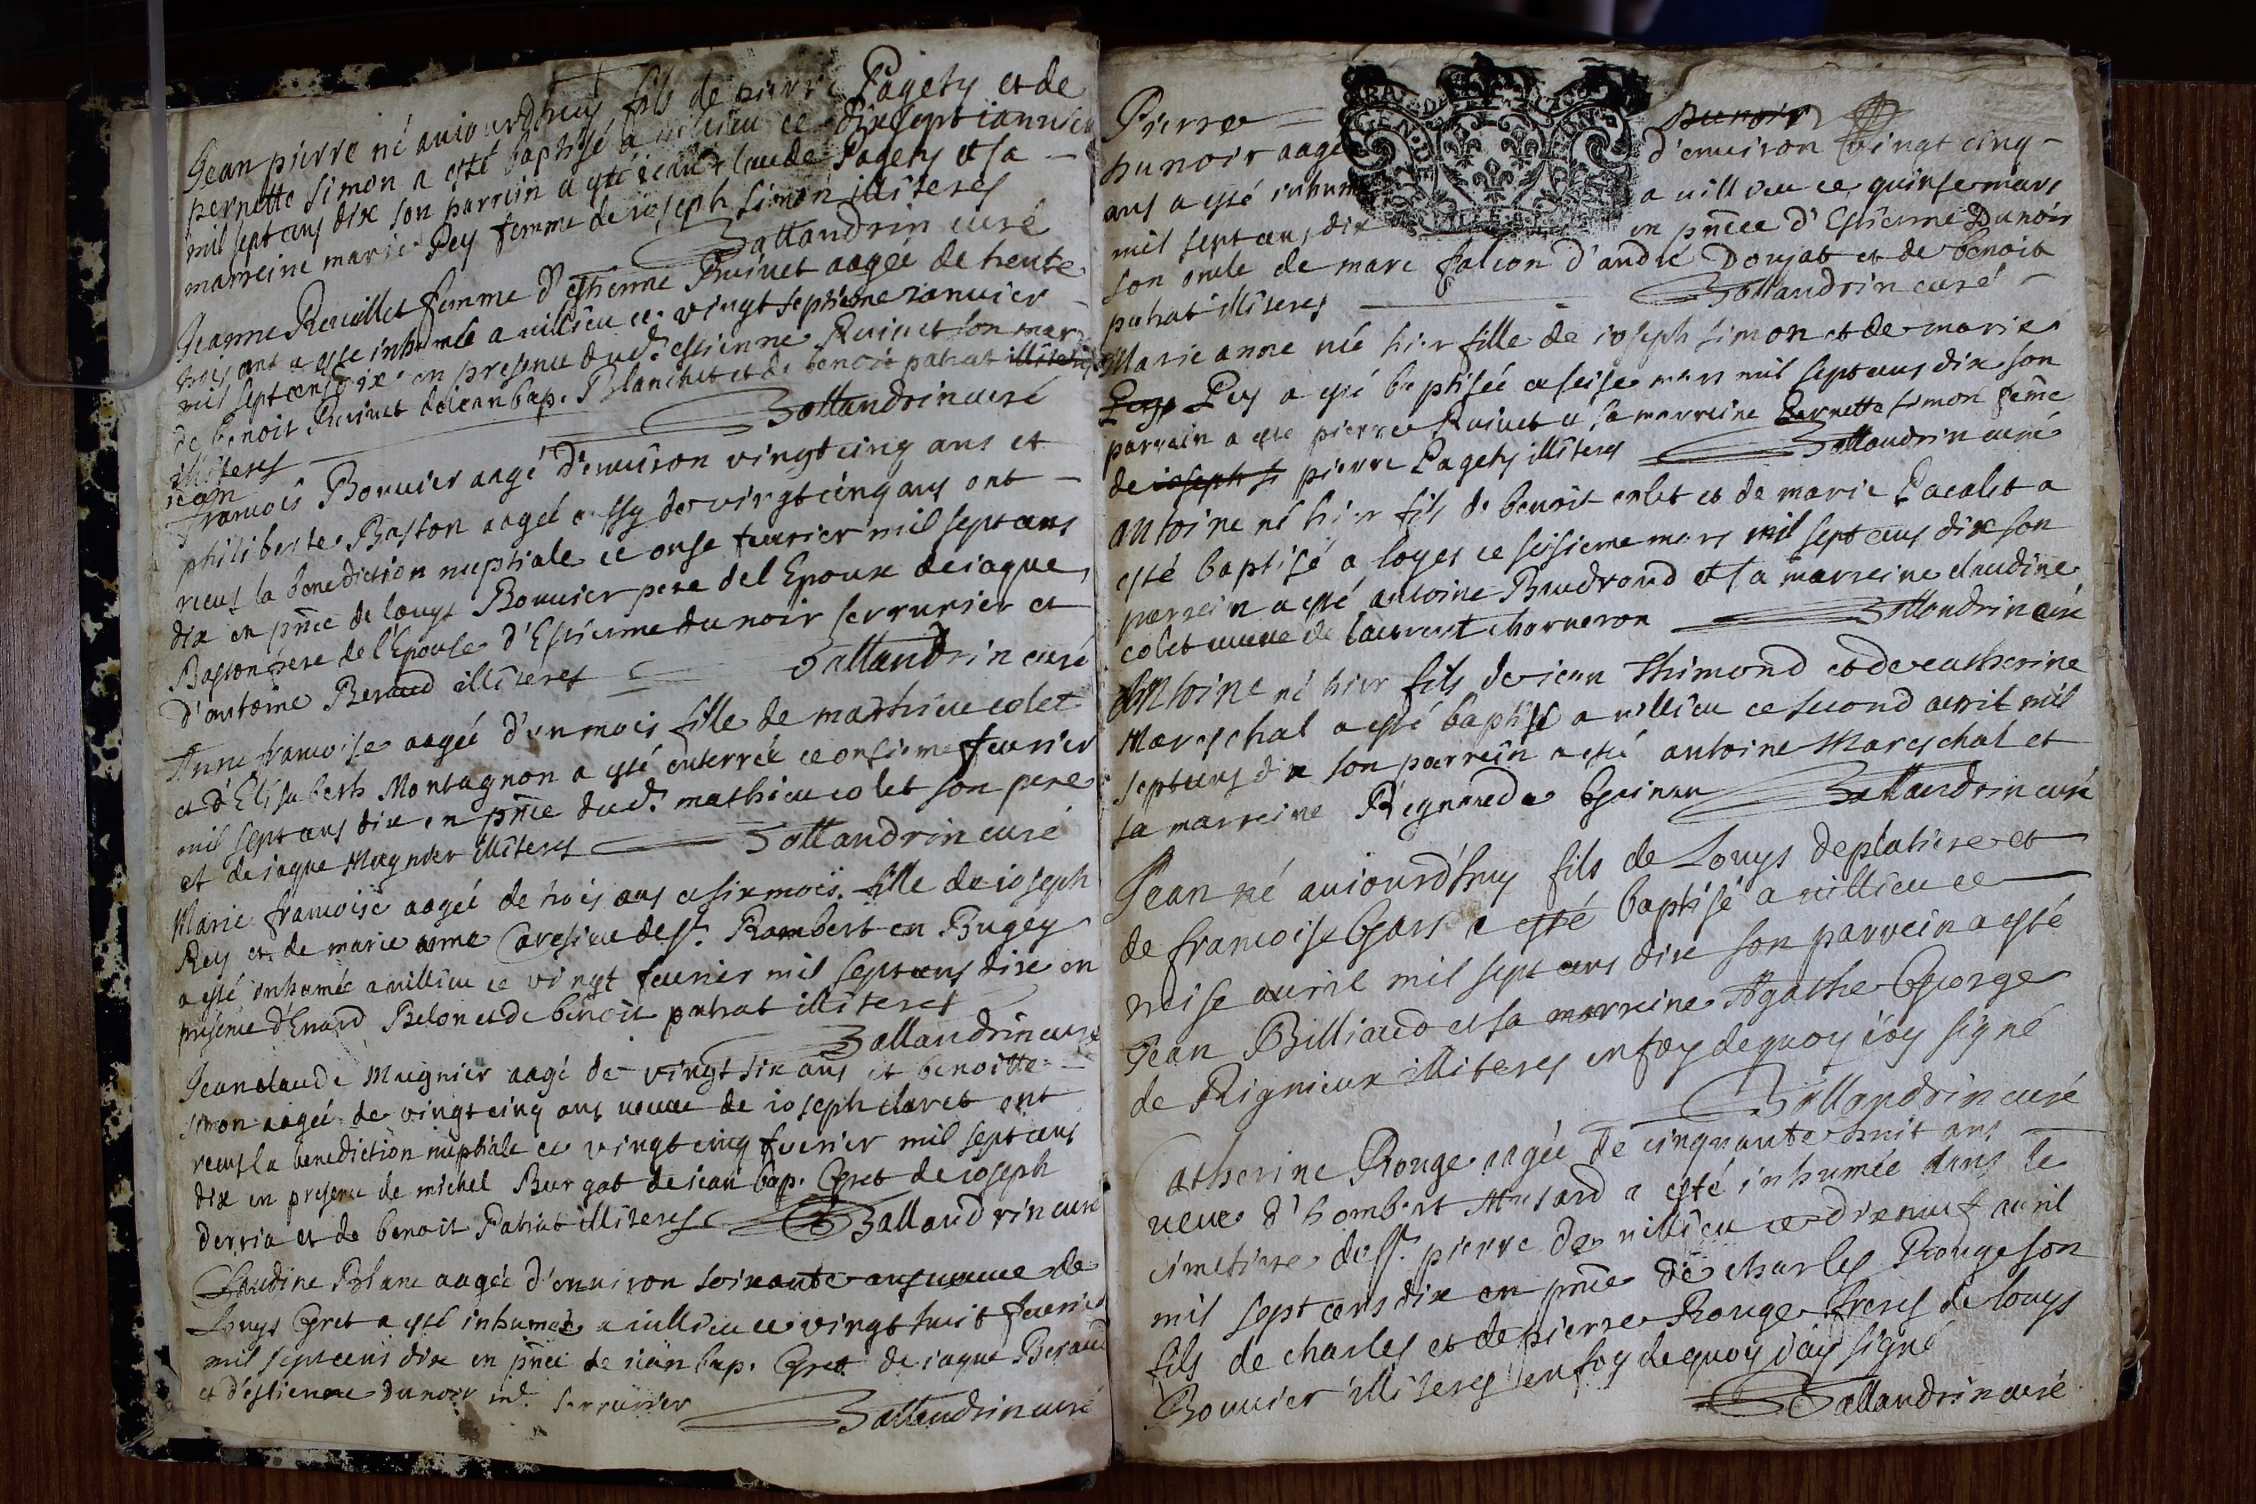 Jean pierre né aujourdhuy fils de pierre Pagety et de
pernette Simon a esté baptisé a villieu ce dixsept janvier
mil sept cens dix son parrein a esté jean claude Pagety et sa
marreine marie Pey femme de joseph Simon illiteres
Ballandrin curé
Jeanne Revillet femme d'estienne Ruivet aagée de trente
trois ans a esté inhumée a villieu ce vingt septieme janvier
mil sept cens dix en presence dud. estienne Ruivet son mary
de benoit Ruivet de jean bap. Blanchet et de benoit patrat illiteres
illiteres
Ballandrin curé
jean
francois Bouvier aagé d'environ vingt cinq ans et
philiberte Baston aagée aussy de vingt cinq ans ont
receus la benediction nuptiale ce onse fevrier mil sept cens
dix en pñce de louys Bouvier pere de l'Epoux de jaque
Baston frere de l'Epouse d'Estienne dunoir serrurier et
d'antoine Beraud illiteres
Ballandrin curé
Anne francoise aagée d'un mois fille de mathieu colet
et d'Elisabeth Montagnon a esté enterrée ce onsieme fevrier
mil sept cens dix en pñce dud. mathieu colet son pere
et de jaque Mugnier illiteres
Ballandrin curé
Marie francoise aagée de trois ans et six mois fille de joseph
Rey et de marie anne de st. Rambert en Bugey
a esté inhumée a villieu ce vingt fevrier mil sept cens dix en
presence d'Enard Belon et de benoit patrat illiteres
Ballandrin curé
Jean claude Mugnier aagé de vingt six ans et benoitte
simon aagée de vingt cinq ans veuve de joseph claret ont
receus la benediction nuptiale ce vingt cinq fevrier mil sept cens
dix en presence de michel Burgat de jean bap. Gret de joseph
derria et de benoit Patrat illiteres
Ballandrin curé
Claudine Blanc aagée d'environ soixante ans veuve de
Louys Gret a esté inhumée a villieu ce vingt huit fevrier
mil sept cens dix en pñce de jean bap. Gret de jaque Beraud
et d'estienne dunoir md. serrurier
Ballandrin curé
Pierre dunoir
dunoir aagé d'environ vingt cinq
ans a esté inhumé a villieu ce quinse mars
mil sept cens dix en pñce d'Estienne Dunoir
son oncle de marc falcon d'andré Donjat et de benoit
patrat illiteres
Ballandrin curé
GEN. D
Marie anne née hier fille de joseph simon et de marie
Pey a esté baptisée ce seise mars mil sept cens dix son
parrein a esté pierre Ruivet et sa marreine Pernette simon feme
de joseph s pierre Pagety illiteres
Ballandrin curé
Antoine né hier fils de benoit colet et de marie Pacalet a
esté baptisé a loyes ce seisieme mars mil sept cens dix son
parrein a esté antoine Baudrand et sa marreine claudine
colet veuve de laurent charveron
Ballandrin curé
Antoine né hier fils de jean Thimond et de catherine
Mareschal a esté baptisé a villieu ce second avril mil
sept cens dix son parrein a esté antoine Mareschal et
sa marreine Regnaude
Ballandrin curé
Jean né aujourd'huy fils de Louys deplatiere et
de francoise Gars a esté baptisé a villieu ce
treise avril mil sept cens dix son parrein a esté
Jean Billiaud et sa marreine Agathe George
de Rignieux illiteres en foy de quoy j'ay signé
Ballandrin curé
Catherine Rouge aagée de cinquante huit ans
veuve d'hombert Musard a esté inhumée dans le
cimetiere de st. pierre de villieu ce dixneuf avril
mil sept cens dix en pñce de charles Rouge son
fils de charles et de pierre Rouge freres de louys
Bouvier illiteres en foy de quoy j'ay signé
Ballandrin curé